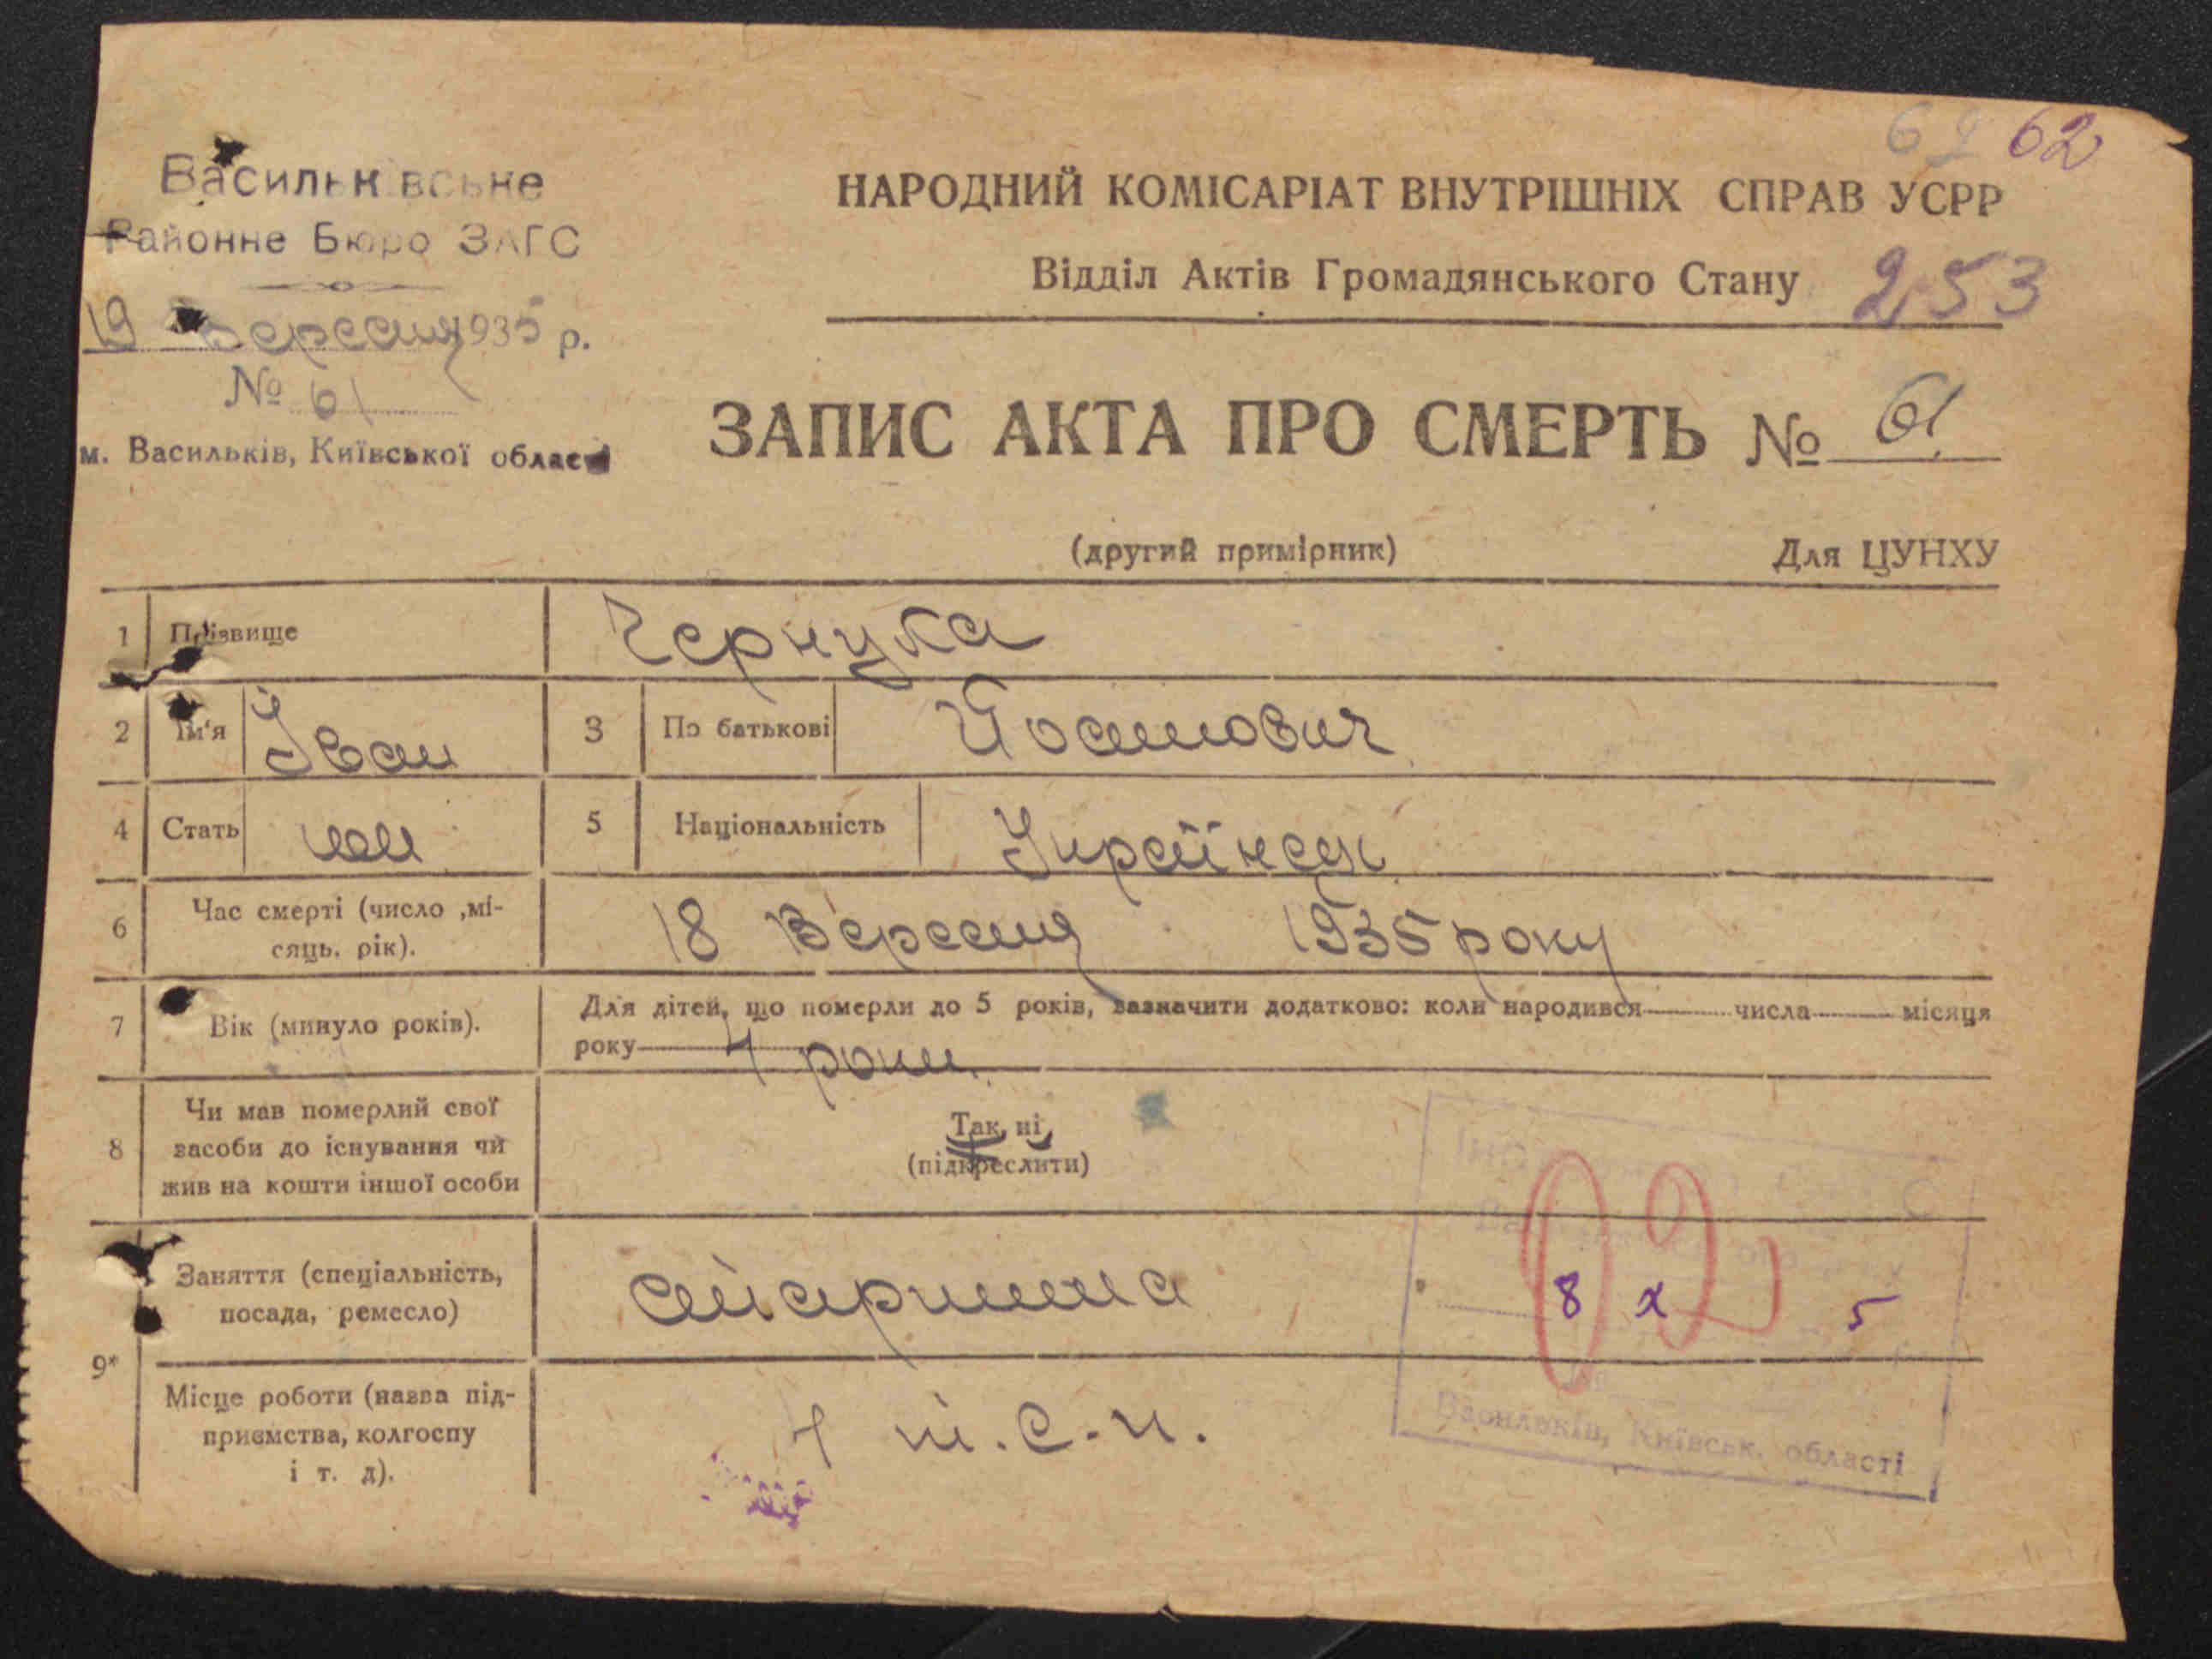 62 62
Васильківське
Районне Бюро ЗАГС
19 Вересня 1935 р.
№ 61
м. Васильків, Київської області
НАРОДНИЙ КОМІСАРІАТ ВНУТРІШНІХ СПРАВ УСРР
Відділ Актів Громадянського Стану 253
ЗАПИС АКТА ПРО СМЕРТЬ № 61
(другий примірник) Для ЦУНХУ
1 Прізвище Чернука
2 Ім'я Іван 3 По батькові
4 Стать чол 5 Національність Українець
6 Час смерті (число ,мі-
сяць, рік). 18 Вересня 1935 року
7 Вік (минуло років). Для дітей, що померли до 5 років, зазначити додатково: коли народився числа місяця
року 4 роки
8 Чи мав померлий свої
засоби до існування чи
жив на кошти іншої особи
Так, ні
(підкреслити)
9* Заняття (спеціальність,
посада, ремесло)
8 х 5
Місце роботи (назва під-
приємства, колгоспу
і т. д).
Васильків, Київськ. області